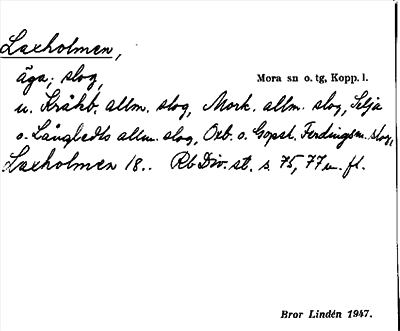 Laxholmen,
äga; slog,
Mora sn o. tg, Kopp. l.
u. Kråkb. allm. slog, Mork. allm. slog, Selja
o. Långledts allm. slog, Oxb. o. Gopsh. Ferdingsm. slog,
Laxholmen 18.. Rb Div. st. s. 75, 77 m. fl.
Bror Lindén 1947.